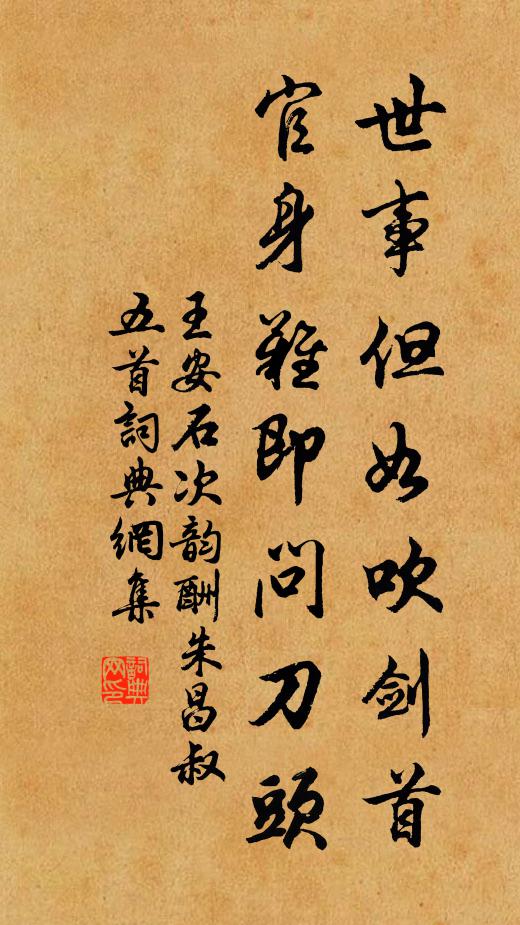 世事但如吹劍首
官身難即問刀頭
王安石次韵酬朱昌叔
五首詞典網集
詞典網印